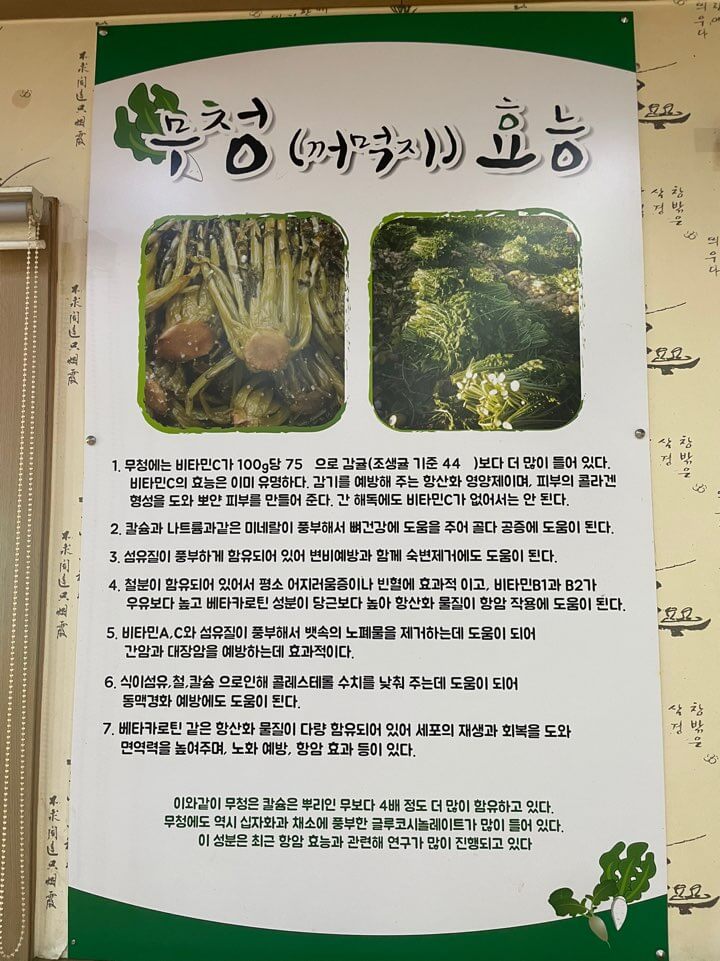 무청 (꺼먹지) 효능
1. 무청에는 비타민C가 100g당 75 으로 감귤(조생귤 기준 44 )보다 더 많이 들어 있다.
비타민C의 효능은 이미 유명하다. 감기를 예방해 주는 항산화 영양제이며, 피부의 콜라겐
형성을 도와 뽀얀 피부를 만들어 준다. 간 해독에도 비타민C가 없어서는 안 된다.
2. 칼슘과 나트륨과같은 미네랄이 풍부해서 뼈건강에 도움을 주어 골다 공증에 도움이 된다.
3. 섬유질이 풍부하게 함유되어 있어 변비예방과 함께 숙변제거에도 도움이 된다.
4. 철분이 함유되어 있어서 평소 어지러움증이나 빈혈에 효과적 이고, 비타민B1과 B2가
우유보다 높고 베타카로틴 성분이 당근보다 높아 항산화 물질이 항암 작용에 도움이 된다.
5. 비타민A,C와 섬유질이 풍부해서 뱃속의 노폐물을 제거하는데 도움이 되어
간암과 대장암을 예방하는데 효과적이다.
6. 식이섬유,철,칼슘 으로인해 콜레스테롤 수치를 낮춰 주는데 도움이 되어
동맥경화 예방에도 도움이 된다.
7. 베타카로틴 같은 항산화 물질이 다량 함유되어 있어 세포의 재생과 회복을 도와
면역력을 높여주며, 노화 예방, 항암 효과 등이 있다.
이와같이 무청은 칼슘은 뿌리인 무보다 4배 정도 더 많이 함유하고 있다.
무청에도 역시 십자화과 채소에 풍부한 글루코시놀레이트가 많이 들어 있다.
이 성분은 최근 항암 효능과 관련해 연구가 많이 진행되고 있다
창밖을
삭경
창밖을
삭경
창밖을
삭경